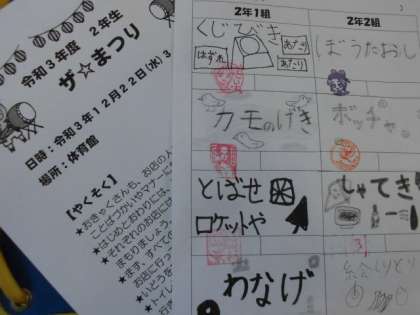 令和3年度 2年生
ザ☆まつり
日時：令和3年12月22日(水) 3
場所：体育館
【やくそく】
★おきゃくさんも、お店の人
ことばづかいやマナーに
★はじめとおわりには、
★それぞれのお店には
まもりましょう。
★まず、すべての
お店に行っ
★いどうを
★トイレ
2年1組
2年2組
くじびき
はずれ
あたり
あたり
ぼうたおし
カモのげき
ボッチャ
とばせ
ロケットや
しゃてき
わなげ
絵しりとり